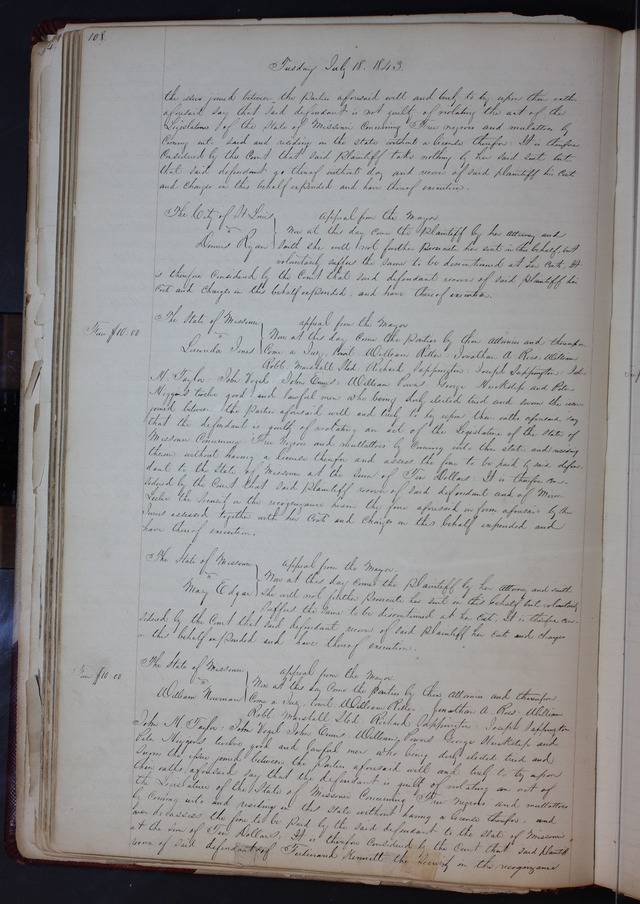 108.
Tuesday July 18. 1843.
the issue joined between the Parties aforesaid well and truly to try upon their oaths
aforesaid say that said defendant is not guilty of violating the act of the
Legislature of the State of Missouri Concerning Free negroes and mulattoes by
Coming into said and residing in the state without a license therefor. It is therefore
Considered by the Court that said Plaintiff take nothing by her said suit but
that said defendant go thereof without day and recover of said Plaintiff his Cost
and Charges in this behalf expended and have thereof execution.
The City of St Louis
vs
Dennis Ryan
appeal from the Mayor
Now at this day come the Plaintiff by her attorney and
saith she will not further Prosecute her suit in this behalf but
voluntarily suffers the same to be discontinued at her Cost. It
is therefore Considered by the Court that said defendant recover of said Plaintiff his
Cost and Charges in this behalf expended, and have thereof execution.
Fine $10.00
The State of Missouri
vs
Lucinda Jones
appeal from the Mayor
Now at this day come the Parties by their attornies and thereupon
Come a Jury, to wit William Ritter Jonathan A. Ross William
Robb Marshall Sted Richard Sappington Joseph Sappington John
H. Taylor John Vogel John William Powers George and Peter
Higgins twelve good and lawful men who being duly elected tried and sworn the issue
joined between the Parties aforesaid well and truly to try upon their oaths aforesaid say
that the defendant is guilty of violating an act of the Legislature of the State of
Missouri Concerning Free Negroes and mulattoes by Coming into the state and residing
therein without having a license therefor and assess the fine to be paid by said defen-
dant to the State of Missouri at the sum of Ten Dollars It is therefore con-
sidered by the Court that said Plaintiff recover of said defendant and of
the Security on the recognizance herein the fine aforesaid in form aforesaid by the
Jurors assessed together with her Costs and Charges in this behalf expended and
have thereof execution.
The State of Missouri
vs
Mary Edgar
appeal from the Mayor.
Now at this day come the Plaintiff by her Attorney and saith
She will not further Prosecute her suit in this behalf but voluntarily
suffers the same to be discontinued at her Cost. It is therefore con-
sidered by the Court that said defendant recover of said Plaintiff her Costs and charges
in this behalf expended and have thereof execution.
Fine $10.00
The State of Missouri
vs
William Newman
appeal from the Mayor
Now at this day Come the Parties by their attornies and thereupon
Come a Jury, to wit William Ritter Jonathan A. Ross William
Robb Marshall Sted Richard Sappington Joseph Sappington
John H. Taylor John Vogel John William Powers George and
Peter Higgins twelve good and lawful men who being duly elected tried and
sworn the issue joined between the Parties aforesaid well and truly to try upon
their oaths aforesaid say that the defendant is guilty of violating an act of
the Legislature of the State of Missouri Concerning Free Negroes and mulattoes
by Coming into and residing in this state without having a license therefor, and
assess the fine to be Paid by the said defendant to the State of Missouri
at the sum of Ten Dollars. It is therefore Considered by the Court that said plaintiff
recover of said defendant and of Ferdinand Kennett the Security on the recognizance